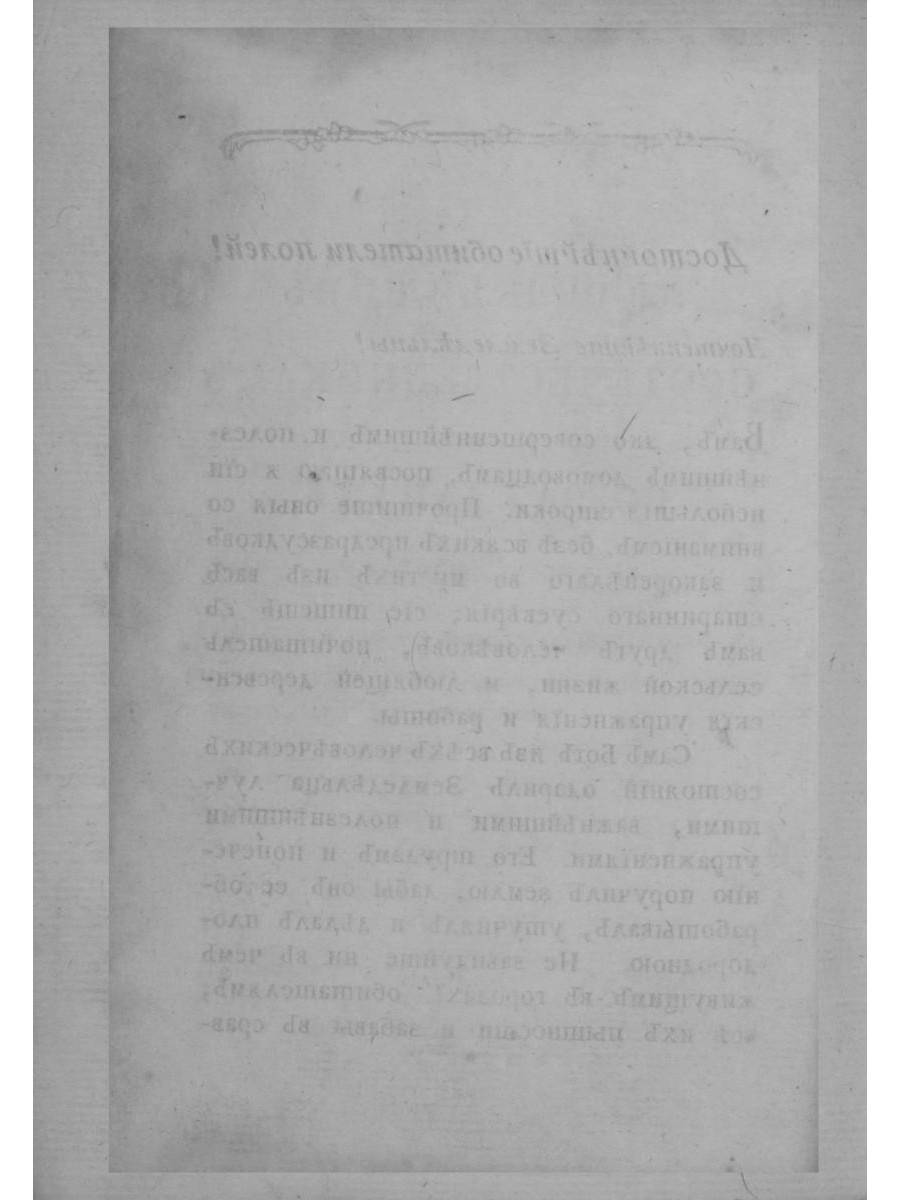 Достойнѣйшіе обитатели полей!
Почтеннѣйшіе Земледѣльцы!
Вамъ, яко совершеннѣйшимъ и полез-
нѣйшимъ домоводцамъ, посвящаю я сіи
небольшія строки. Прочтите оныя со
вниманіемъ, безъ всякихъ предразсудковъ
и закоренѣлаго во многихъ изъ васъ
стариннаго суевѣрія; сіе пишетъ къ
вамъ другъ человѣковъ, почитатель
сельской жизни, и любящей деревен-
скія упражненія и работы.
Самъ Богъ изъ всѣхъ человѣческихъ
состояній одарилъ Земледѣльца луч-
шими, важнѣйшими и полезнѣйшими
упражненіями. Его трудамъ и попече-
нію поручилъ землю, дабы онъ ее об-
работывалъ, утучнялъ и дѣлалъ пло-
дородною. Не завидуйте ни въ чемъ
живущимъ въ городахъ обитателямъ;
всѣ ихъ пышности и забавы въ срав-